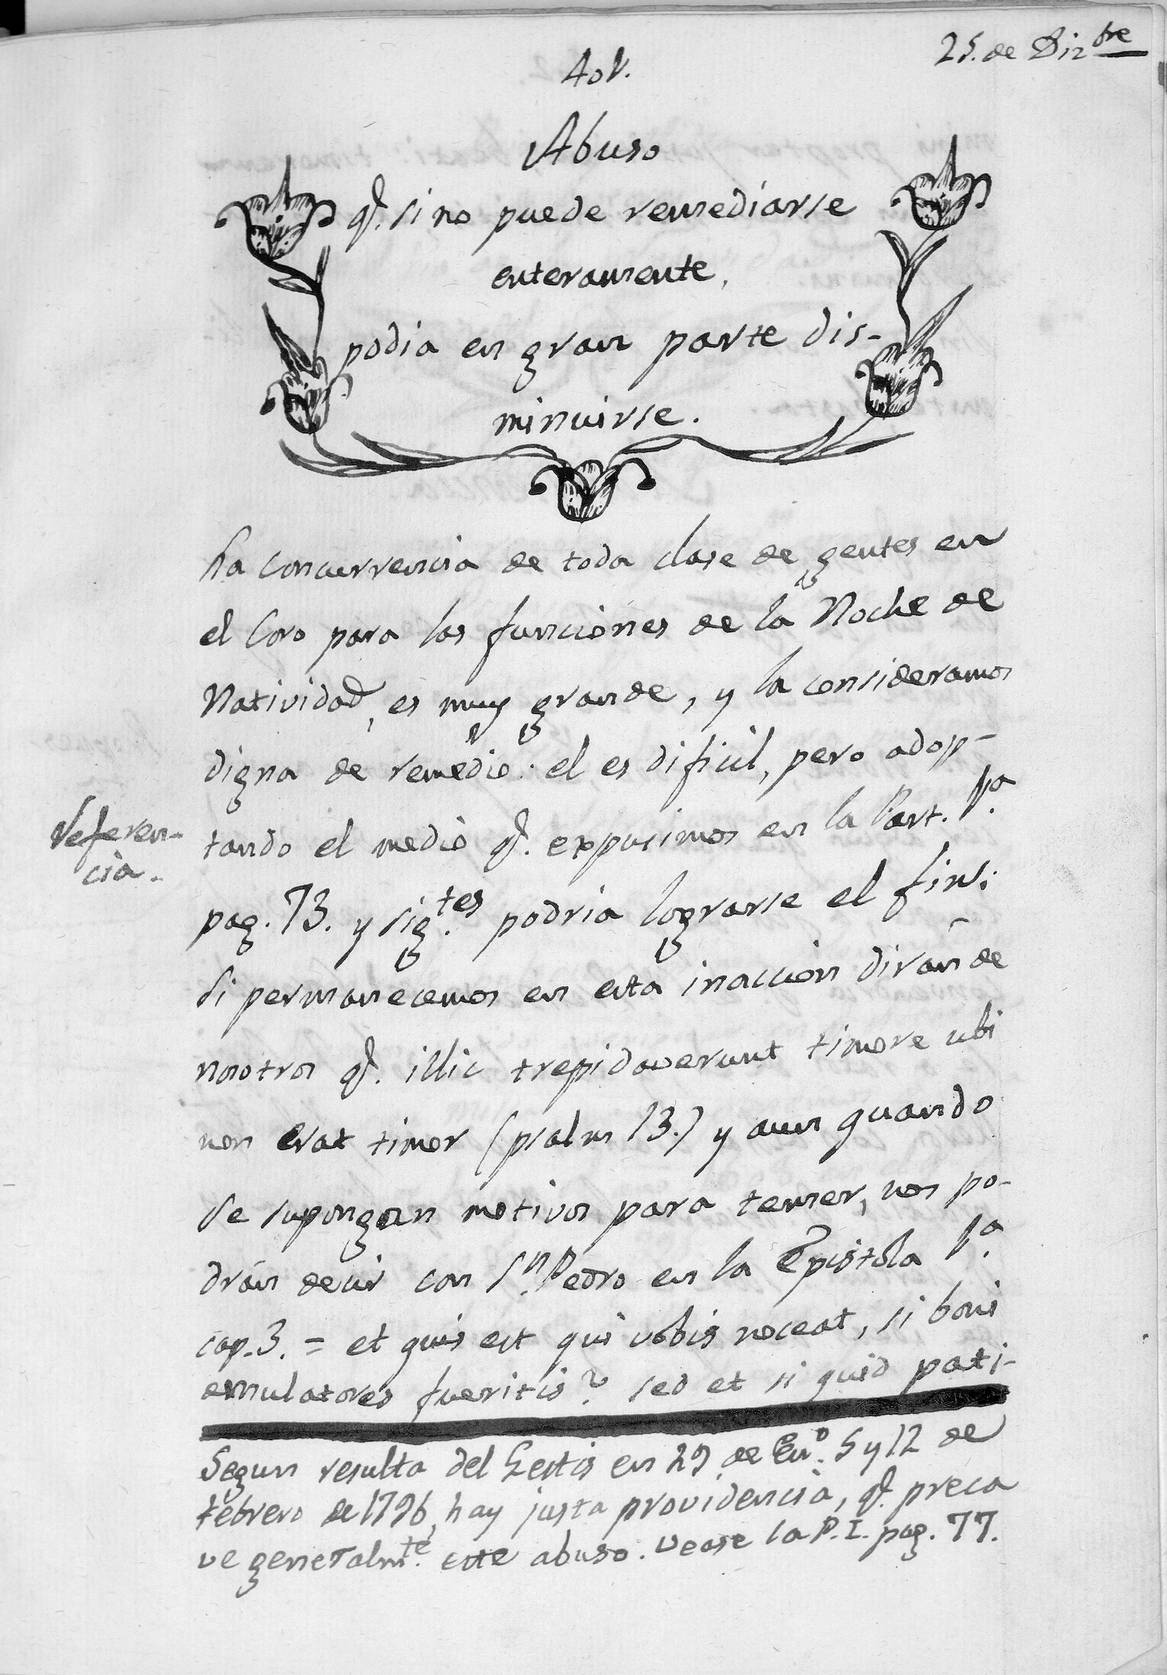 25. de Dizbre
401.
Abuso
q.e si no puede remediarse
enteramente,
podia en gran parte dis-
minuirse.
La concurrencia de toda clase de gentes en
el Coro para las funciones de la Noche de
Natividad, es muy grande, y la consideramos
digna de remedio: el es dificil, pero adop-
Referen-
cia.
tando el medio q. expusimos en la Part. 1.a
pag. 73. y sig.tes podria lograrse el fin:
si permanecemos en esta inaccion dirán de
nosotros q. illic trepidaverunt timore ubi
non erat timor (psalm 13.) y aun quando
se supongan motivos para temer, nos po-
drán decir con S.n Pedro en la Epistola 1.a
cap. 3. = et quis est qui vobis noceat, si boni
emulatores fueritis? sed et si quid pati-
Segun resulta del Gestis en 29 de En.o 5 y 12 de
febrero de 1796, hay justa providencia, q. preca
ve generalm.te este abuso. vease la P. I. pag. 77.